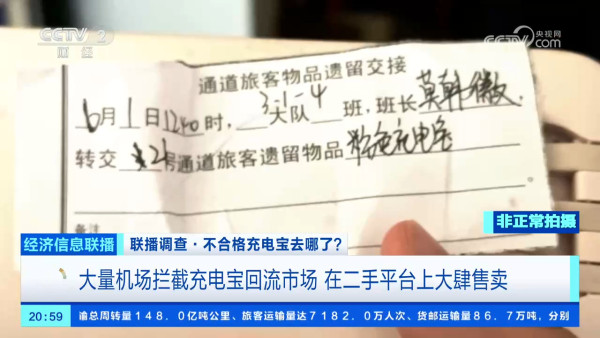 CCTV 2
财经
央视网
com
通道旅客物品遗留交接
6月1日1240时, 3-1-4大队 班, 班长
转交 2号通道旅客遗留物品 充电宝
备注
非正常拍摄
经济信息联播 联播调查·不合格充电宝去哪了?
大量机场拦截充电宝回流市场 在二手平台上大肆售卖
20:59 渝总周转量148.0亿吨公里、旅客运输量达7182.0万人次、货邮运输量86.7万吨,分别